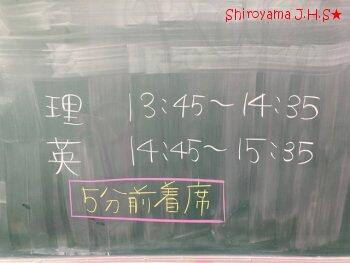 Shiroyama J.H.S★
理 13:45～14:35
英 14:45～15:35
5分前着席